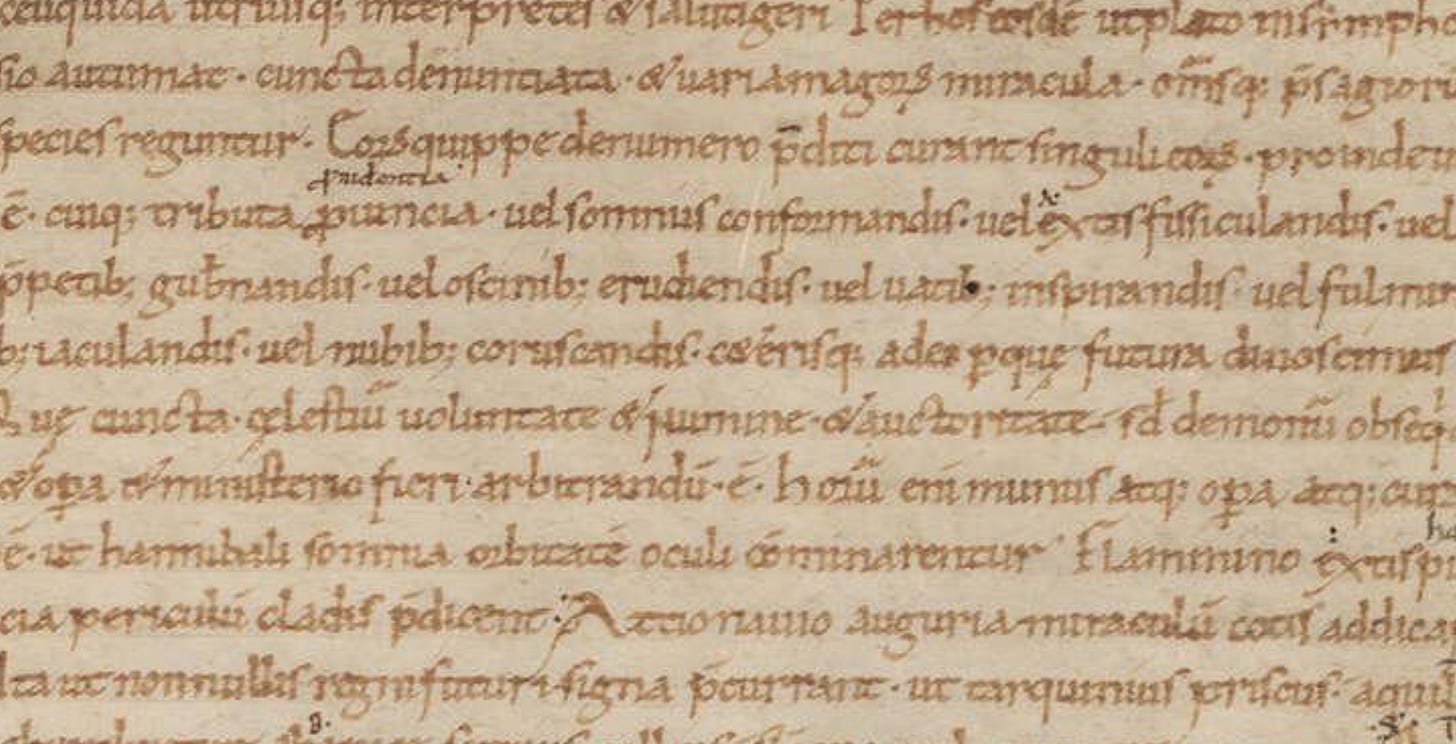 utriusq; interpretes & salutigeri Per hos eosdē ut plato in simpho
sio autumat · cuncta denuntiata · & uaria magoꝝ miracula · om̄sq; p̄sagioꝝ
species reguntur · Eoꝝ quippe de numero p̄diti curant singuli eoꝝ · proinde ut
ꝓuidentia
ē · cuiq; tributa ꝓuincia · uel somnus conformandis · uel extis fissiculandis · uel
p̄petib; gub̄nandis · uel oscinib; erudiendis · uel uatib; inspirandis · uel fulmini
b; iaculandis · uel nubib; coruscandis · c&erisq; adeo ꝑ quę futura dinoscimus
Quę cuncta · cęlestiū uoluntate & numine · & auctoritate · sꝫ demonū obseq
& oꝑa & ministerio fieri arbitrandū · ē · hoꝝ eni munus atq; oꝑa atq; cura
ē · ut hannibali somnia orbitatē oculi cōminarentur · Flaminino extispi
cia periculū cladis p̄dicent · Attio nauio auguria miraculū cotis addica
Ita ut nonnullis regni futuri signa p̄currant · ut tarquinius priscus · aqui